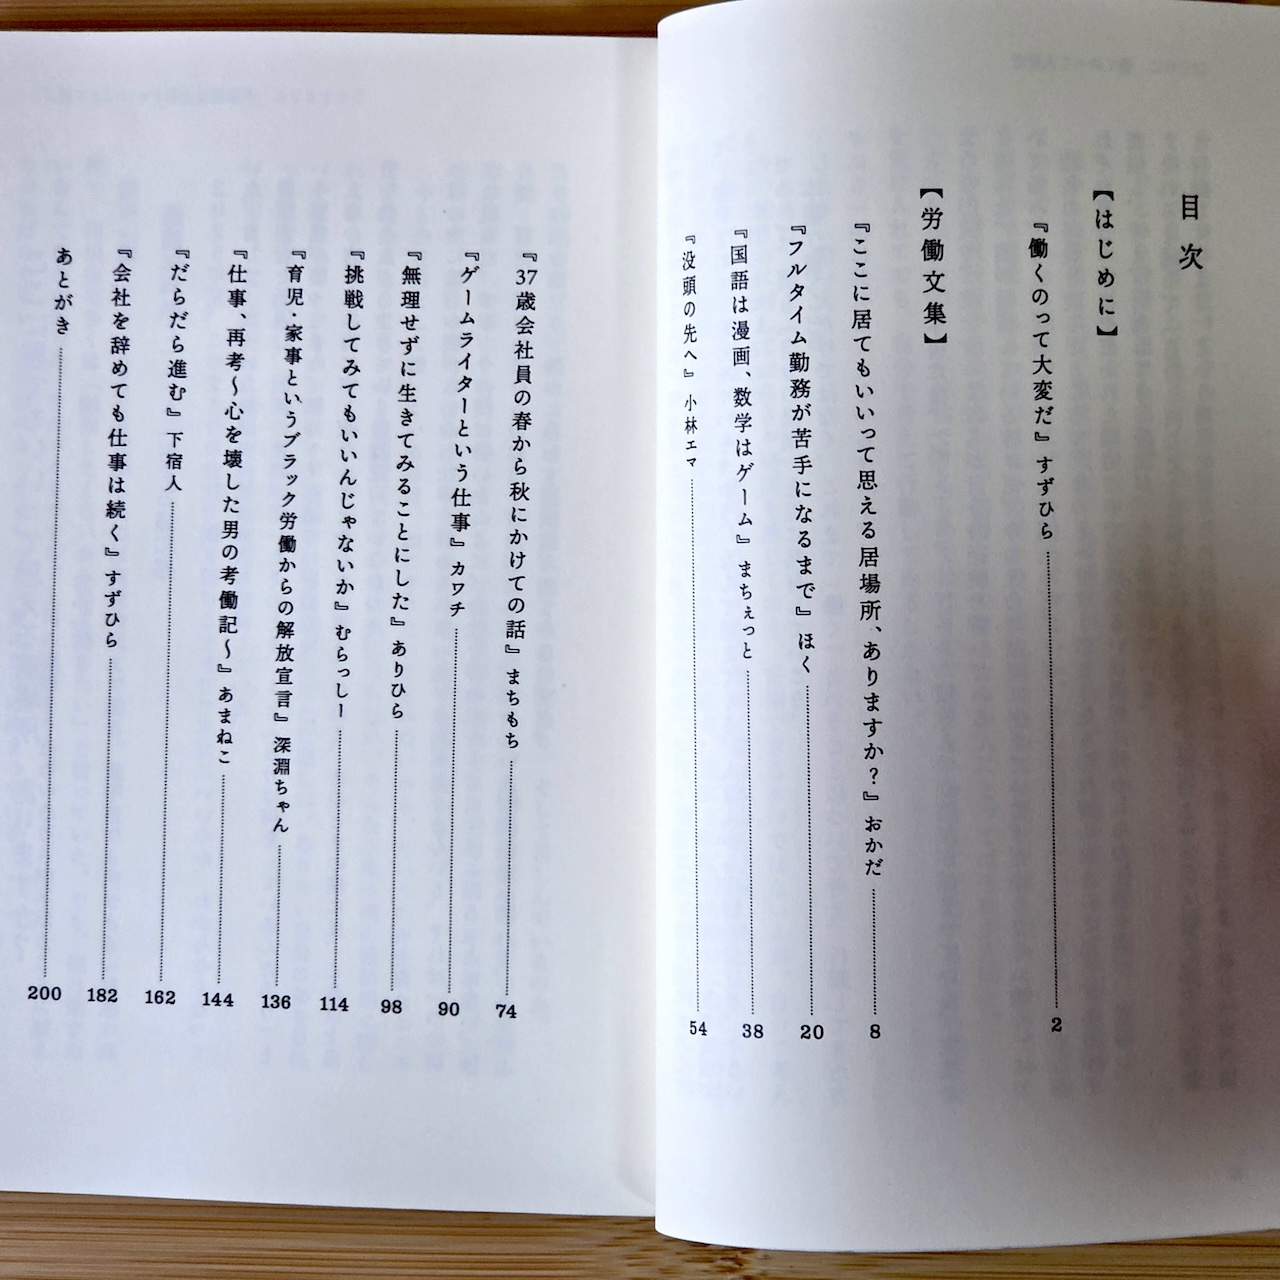 目次
【はじめに】
『働くのって大変だ』すずひら 2
【労働文集】
『ここに居てもいいって思える居場所、ありますか?』おかだ 8
『フルタイム勤務が苦手になるまで』ほく 20
『国語は漫画、数学はゲーム』まちぇっと 38
『没頭の先へ』小林エマ 54
『37歳会社員の春から秋にかけての話』まちもち 74
『ゲームライターという仕事』カワチ 90
『無理せずに生きてみることにした』ありひら 98
『挑戦してみてもいいんじゃないか』むらっしー 114
『育児・家事というブラック労働からの解放宣言』深淵ちゃん 136
『仕事、再考〜心を壊した男の考働記〜』あまねこ 144
『だらだら進む』下宿人 162
『会社を辞めても仕事は続く』すずひら 182
あとがき 200